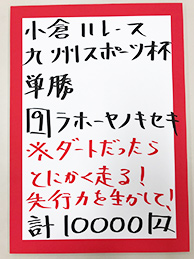 小倉11レース
九州スポーツ杯
単勝
9ラホーヤノキセキ
※ダートだったら
とにかく走る!
先行力を生かして!
計10000円